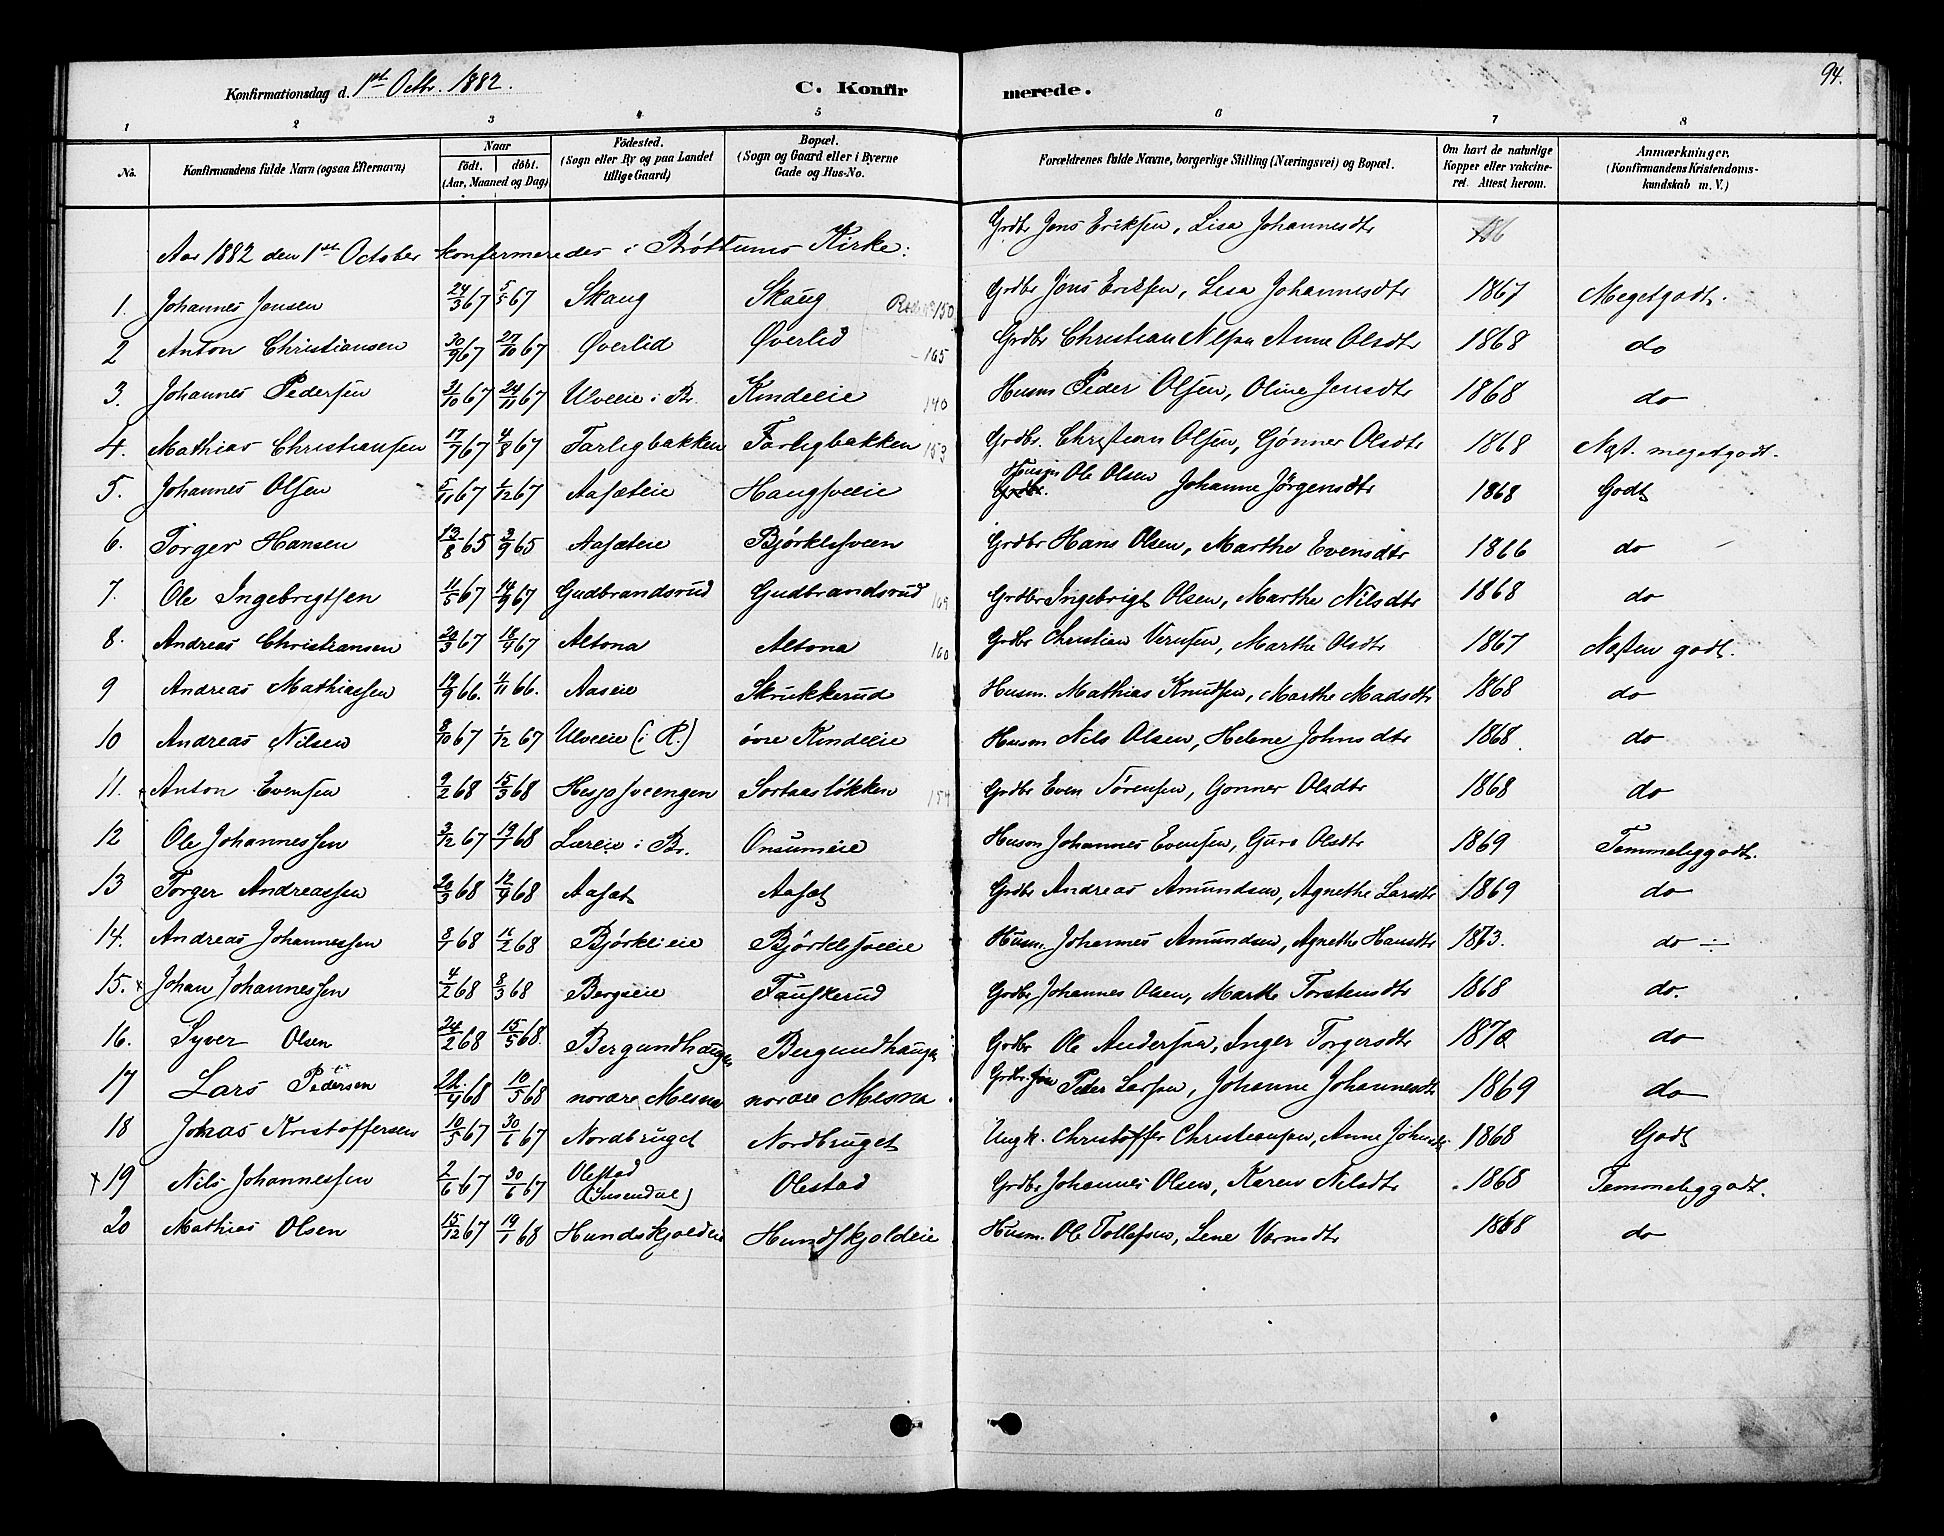 94.
Konfirmationsdag d. 1st Octbr. 1882. C. Konfirmerede.
1 2 3 4 5 6 7 8
No. Konfirmandens fulde Navn (ogsaa Efternavn) Naar födt. döbt. (Aar, Maaned og Dag) Födested. (Sogn eller By og paa Landet tillige Gaard) Bopæl. (Sogn og Gaard eller i Byerne Gade og Hus-No. Forældrenes fulde Navne, borgerlige Stilling (Næringsvei) og Bopæl. Om havt de naturlige Kopper eller vakcineret. Attest herom. Anmærkninger, (Konfirmandens Kristendomskundskab m. V.)
Aar 1882 den 1st October konfirmeredes i Brøttums Kirke: Grdbr Jons Eriksen, Lisa Johannesdtr
1. Johannes Jonsen 24/3 67 5/5 67 Skaug Skaug 150 Grdbr Jons Eriksen, Lisa Johannesdtr 1867 Megetgodt.
2 Anton Christiansen 30/9 67 27/10 67 Øverlid Øverlid 165 Grdbr Christian Nelsen Anne Olsdtr 1868 do
3. Johannes Pedersen 21/10 67 24/11 67 Ulveeie i Br. Kindeeie 140 Husm Peder Olsen, Oline Jensdtr 1868 do
4. Mathias Christiansen 17/7 67 4/8 67 Farligbakken Farligbakken 153 Grdbr. Christian Olsen, Gønner Olsdtr 1868 Nqst. megetgodt.
5. Johannes Olsen 5/11 67 1/12 67 Aasæteie Haugsveeie Husm Ole Olsen Johanne Jørgensdtr 1868 Godt
6. Torger Hansen 13/8 65 3/9 65 Aasæteie Bjørklesveen Grdbr Hans Olsen, Marthe Evensdtr 1866 do
7. Ole Ingebrigtsen 11/5 67 14/9 67 Gudbrandsrud Gudbrandsrud 169 Grdbr Ingebrigt Olsen, Marthe Nilsdtr 1868 do
8. Andreas Christiansen 20/3 67 18/4 67 Altona Altona 160 Grdbr Christian Versen, Marthe Olsdtr 1867 Næsten godt.
9 Andreas Mathiassen 19/9 66. 11/11 66. Aaseie Skrukkerud Husm. Mathias Knudsen, Marthe Madsdtr 1868 do
10 Andreas Nilsen 8/10 67 1/12 67 Ulveeie (i R.) övre Kindeeie Husm Nils Olsen, Helene Johnsdtr 1868. do
11. Anton Evensen 9/2 68 15/3 68 Hesjasveengen Sortaasløkken 154 Grdbr Even Törensen, Gonner Olsdtr 1868 do
12 Ole Johannessen 3/12 67 19/1 68 Læreie i Br. Onsumeie Husm Johannes Evensen, Guro Olsdtr 1869 Temmeliggodt.
13 Torger Andreassen 20/3 68 12/4 68 Aasæt Aasæt Grdbr Andreas Amundsen, Agnethe Larsdtr 1869 do
14. Andreas Johannessen 8/1 68 11/2 68 Bjørklieie Bjørklesveeie Husm. Johannes Amundsen, Agnethe Hansdtr 1873. do ÷
15. Johan Johannessen 4/2 68 8/3 68 Bergseie Fauskerud Grdbr Johannes Olsen, Marthe Torstensdtr 1868 do.
16. Syver Olsen 24/2 68 15/5 68. Bergundhaugen Bergundhaugen Grdbr Ole Andersen, Inger Torgersdtr 1870 do
17 Lars Pedersen 24/4 68 10/5 68 nordre Mesna nordre Mesna Grdbr. Peter Larsen, Johanne Johannesdtr 1869 do
18 Johas Kristoffersen 10/5 67 30/6 67 Nordbruget Nordbruget Ungk. Christoffer Christiansen, Anne Johnsdtr 1868 Godt
x 19 Nils Johannessen 2/6 67 30/6 67 Olestad (Susendal) Olestad Grdbr Johannes Olsen, Karen Nilsdtr 1868 Temmeliggodt.
20 Mathias Olsen 15/12 67 19/1 68 Hundskjoldeie Hundskjoldeie Husm. Ole Tollefsen, Lene Vernsdtr 1868 do